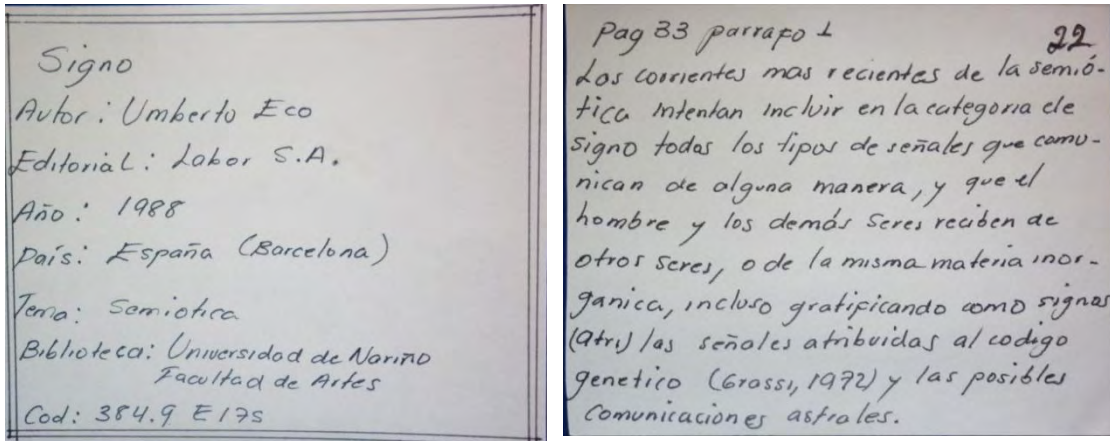 Signo
Autor: Umberto Eco
Editorial: Labor S.A.
Año: 1988
País: España (Barcelona)
Tema: Semiotica
Biblioteca: Universidad de Nariño
Facultad de Artes
Cod: 384.9 E17s
Pag 33 parrafo 1
22
Los corrientes mas recientes de la semió-
tica intentan incluir en la categoria de
signo todos los tipos de señales que comu-
nican de alguna manera, y que el
hombre y los demás seres reciben de
otros seres, o de la misma materia inor-
ganica, incluso gratificando como signos
(atri) las señales atribuidas al codigo
genetico (Grassi, 1972) y las posibles
comunicaciones astrales.